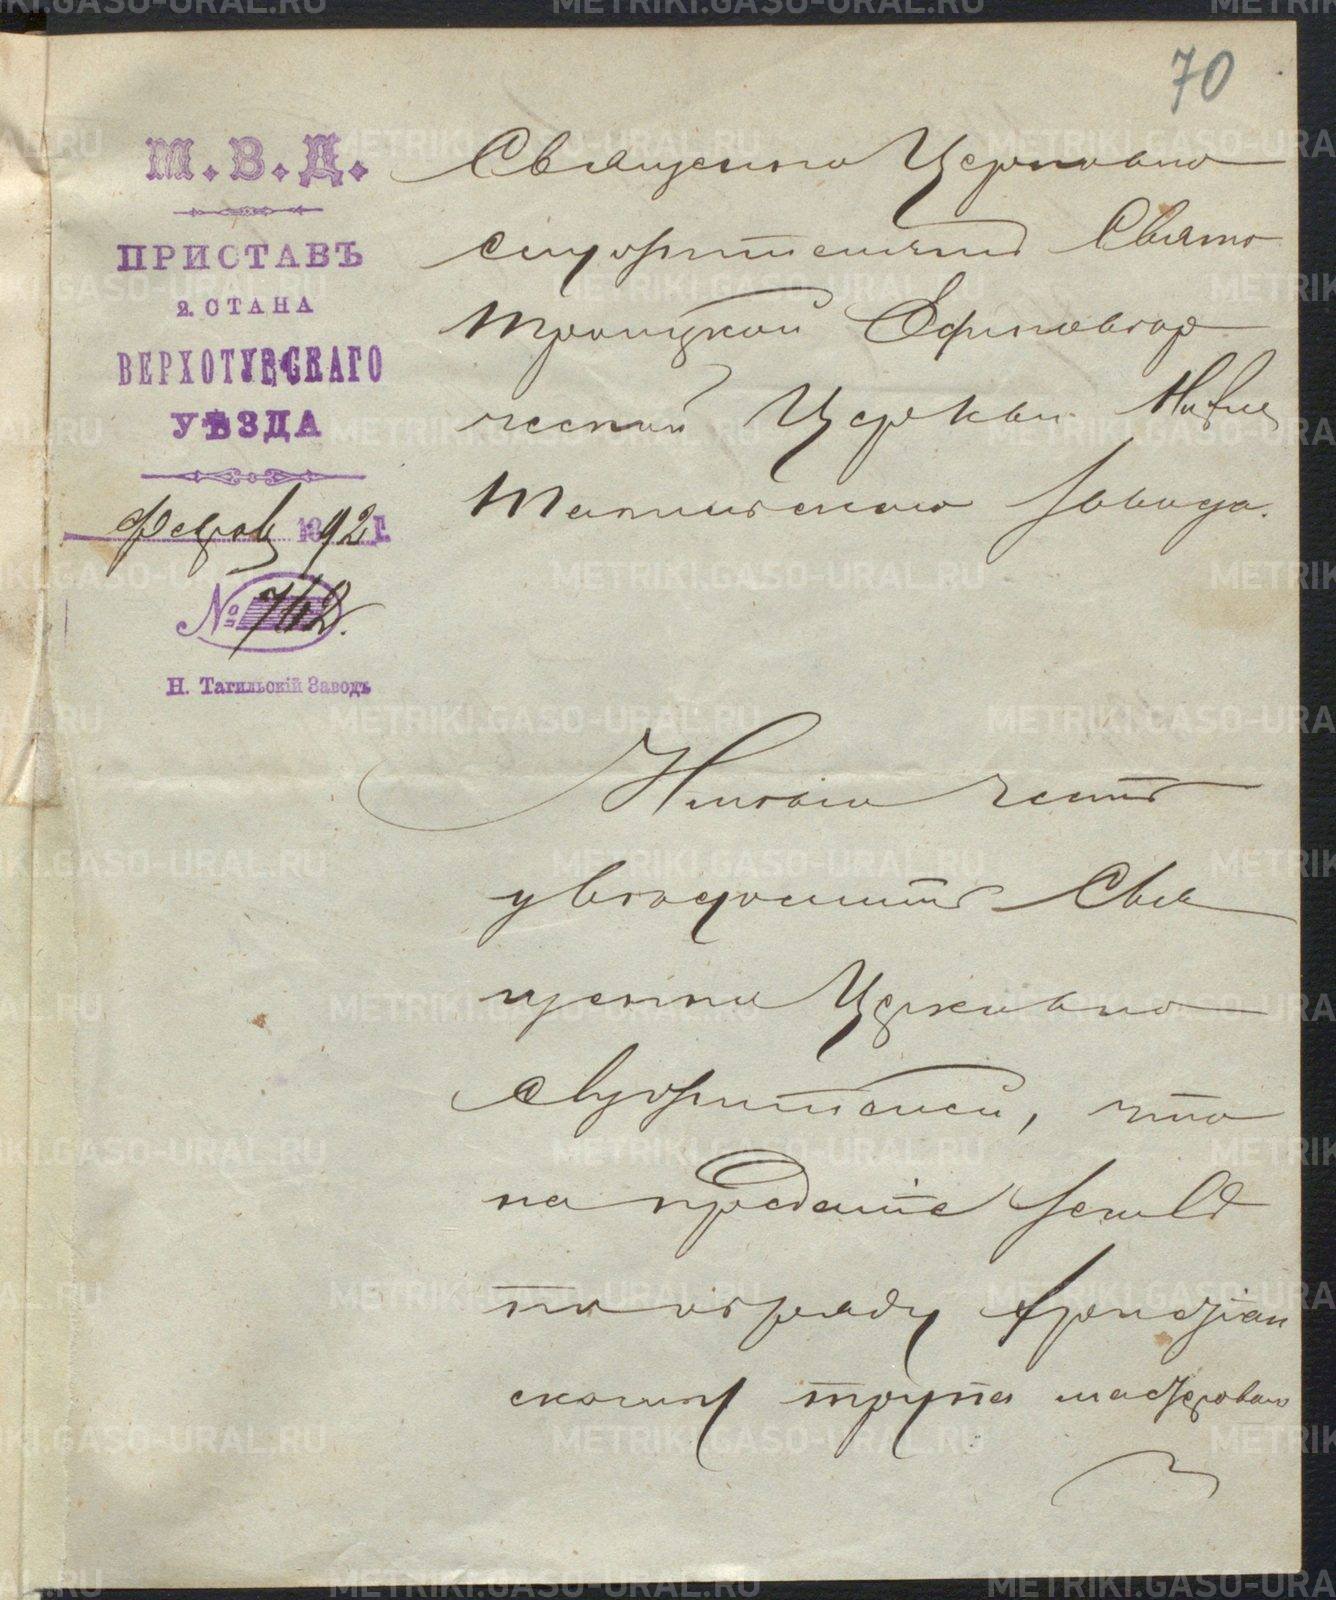 70
М.В.Д.
ПРИСТАВЪ
2. СТАНА
ВЕРХОТУРСКАГО
УѢЗДА
Февраля 1892 Г.
№ 702.
Н. Тагильскій Заводъ
Священно Церковно
служителямъ Свято
Троицкой Единовѣр
ческой Церкви Нижне
Тагильскаго завода.
Имѣю честь
увѣдомить Свя
щенно Церковно
служителей, что
на преданіе землѣ
по обряду христіан
скому трупа мастероваго
METRIKI.GASO-URAL.RU